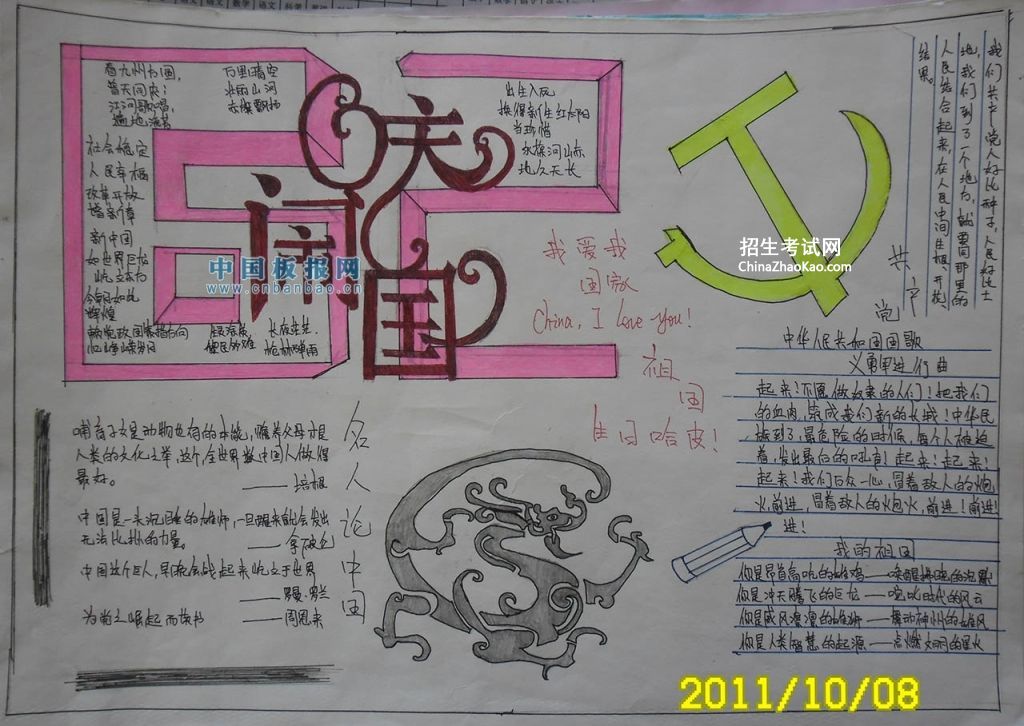 普天同庆,
江河歌唱,
万里晴空
壮丽山河
社会稳定
人民幸福
改革开放
新中国
如世界巨龙
辉煌
出生入死
换得新生红太阳
当珍惜
永葆河山赤
地久天长
庆
祝
国
中国板报网
www.cnbanbao.cn
我爱我
国家
China, I love you!
祖
国
生日哈皮!
招生考试网
ChinaZhaoKao.com
共
产
党
我们共产党人好比种子,人民好比土
地,我们到了一个地方,就要同那里的
人民结合起来,在人民中间生根、开花、
结果。
中华人民共和国国歌
义勇军进行曲
起来!不愿做奴隶的人们!把我们
的血肉,筑成我们新的长城!中华民
族到了,最危险的时候,每个人被迫
着,发出最后的吼声!起来!起来!
起来!我们万众一心,冒着敌人的炮
火,前进,冒着敌人的炮火,前进!前进!
进!
我的祖国
你是昂首高吭的雄鸡——唤醒拂晓的沉默
你是冲天腾飞的巨龙——叱咤时代的风云
你是威风凛凛的雄狮——舞动神州的雄风
你是人类智慧的起源——点燃文明的星火
名
人
论
中
国
哺育子女是动物也有的本能,赡养父母才是
人类的文化之举,这个,全世界数中国人做得
最好。
——培根
中国是一头沉睡的雄狮,一旦醒来就会发出
无法比拟的力量。
——拿破仑
中国这个巨人,早晚会战起来屹立于世界
——罗曼·罗兰
为崛起而读书
——周恩来
2011/10/08